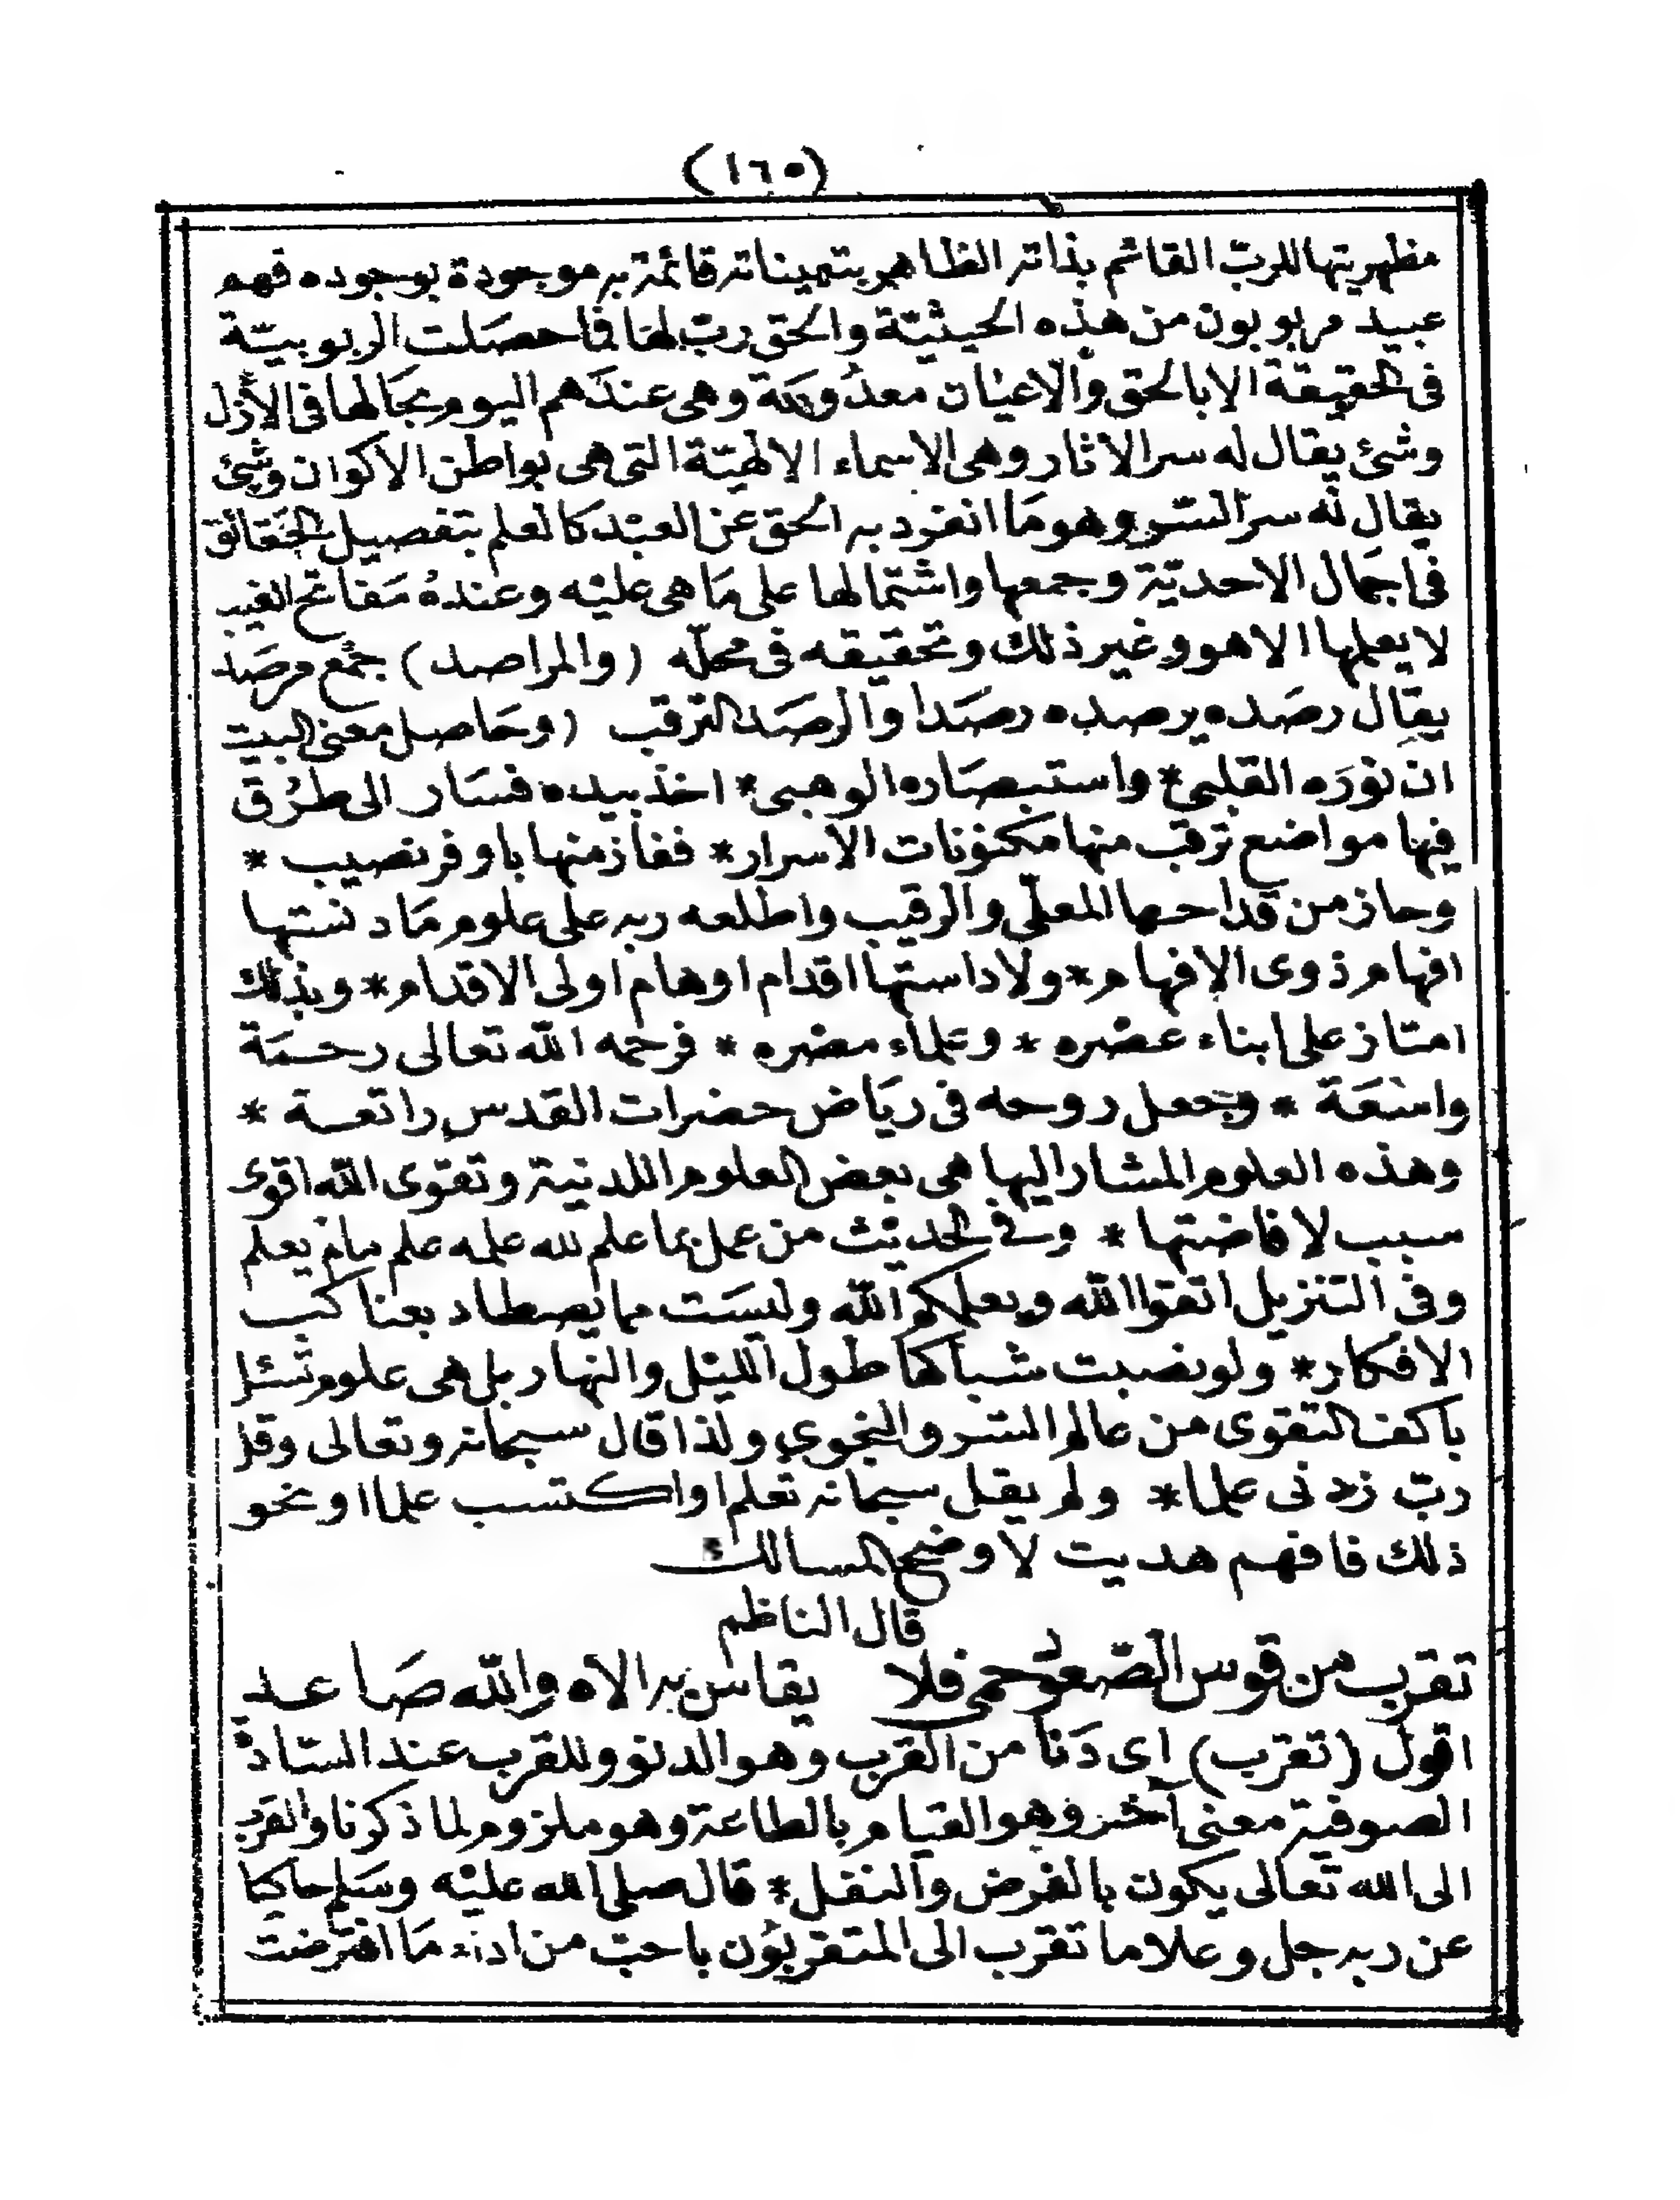 (١٦٥)
مظهريتها للربّ القائم بذاته الظاهر بتعيناته قائمة به موجودة بوجوده فهم
عبيد مربوبون من هذه الحيثيّة والحق ربّ لها فما حصَلت الربوبيّة
فى الحقيقة الا بالحق والاعيَان معدُومَة وهى عندَهم اليوم بحَالها فى الأزل
وشئ يقال له سر الاثار وهى الاسماء الالهيّة التى هى بواطن الاكوان وشئ
يقال له سرّ السّر وهو مَا انفرد به الحق عن العبْد كالعلم بتفصيل الحقَائق
فى اجمَال الاحديّة وجمعها واشتمالها على مَا هى عليْه وعندهُ مَفاتح الغيب
لا يعلمها الا هو وغير ذلك وتحقيقه فى محلّه (والمراصد) جمْع مرصَد
يقال رصَده يرصده رصَدا والرصَد الترقب (وحَاصل معنى البيت
ان نورَه القلبي * واستبصَاره الوهبى * اخذ بيده فسَار الى طرُق
فيها مواضع ترقب منها مكنونات الأسرار * ففاز منها باوفر نصيب *
وحاز من قداحها المعلّى والرقيب واطلعه ربه على علوم مَا دنستها
افهام ذوى الافهام * ولا داستها اقدام اوهام اولى الاقدام * وبذلك
امتاز على ابناء عصْره * وعلماء مصْره * فرحمه الله تعالى رحمَة
واسْعَة * وجعل روحه فى ريَاض حضرات القدس راتعة *
وهذه العلوم المشار اليها هى بعض العلوم اللدنية وتقوى الله اقوى
سبب لافاضتها * وفى الحديث من عمل بما علم لله علمه علم مالم يعلم
وفى التنزيل اتقوا الله ويعلمكم الله وليسَت مما يصطاد بعناكب
الافكار * ولو نصبت شباكها طول الليْل والنهار بل هى علوم تسئل
باكف التقوى من عالم السّر والنجوى ولذا قال سبحانه وتعالى وقل
ربّ زدنى علما * ولم يقل سبحانه تعلم او اكتسب علما او نحو
ذلك فافهم هديت لاوضح المسالك
قال الناظم
تقرب من قوس الصّعود حمى فلا يقاس به الاه والله صَاعد
اقول (تقرب) اى دَنا من القرب وهو الدنو وللقرب عند السّادة
الصوفية معنى آخر وهو القيام بالطاعة وهو ملزوم لما ذكرنا والقرب
الى الله تعالى يكون بالفرض والنفل * قال صلى الله عليْه وسَلم حاكيا
عن ربه جل وعلا ما تقرب الى المتقربُون باحبّ من اداء مَا افترضت